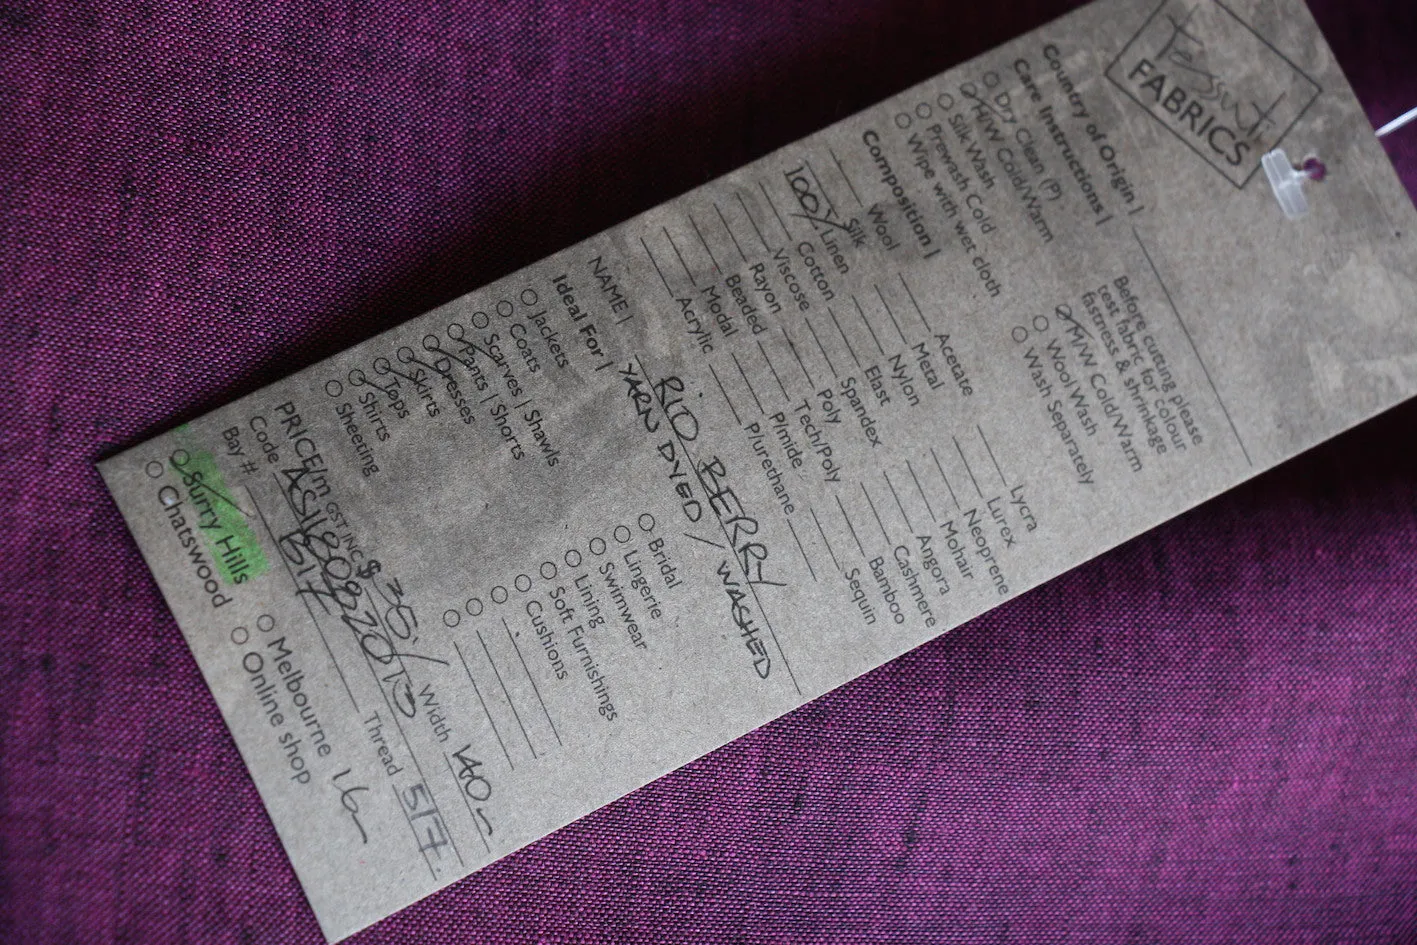 Tessuti
FABRICS
Country of Origin |
Care Instructions |
Dry Clean (P)
M/W Cold/Warm
Silk Wash
Prewash Cold
Wipe with wet cloth
Before cutting please
test fabric for colour
fastness & shrinkage
M/W Cold/Warm
Wool Wash
Wash Separately
Composition |
Wool
Silk
100% Linen
Cotton
Viscose
Rayon
Beaded
Modal
Acrylic
Acetate
Metal
Nylon
Elast
Spandex
Poly
Tech/Poly
P/mide
P/urethane
Lycra
Lurex
Neoprene
Mohair
Angora
Cashmere
Bamboo
Sequin
NAME | RIO BERRY
YARN DYED / WASHED
Ideal For |
Jackets
Coats
Scarves | Shawls
Pants | Shorts
Dresses
Skirts
Tops
Shirts
Sheeting
Bridal
Lingerie
Swimwear
Lining
Soft Furnishings
Cushions
PRICE/m GST INC $ 35/ Width 140
Code
Bay # B17 Thread 517
Surry Hills
Chatswood
Melbourne
Online shop
16m